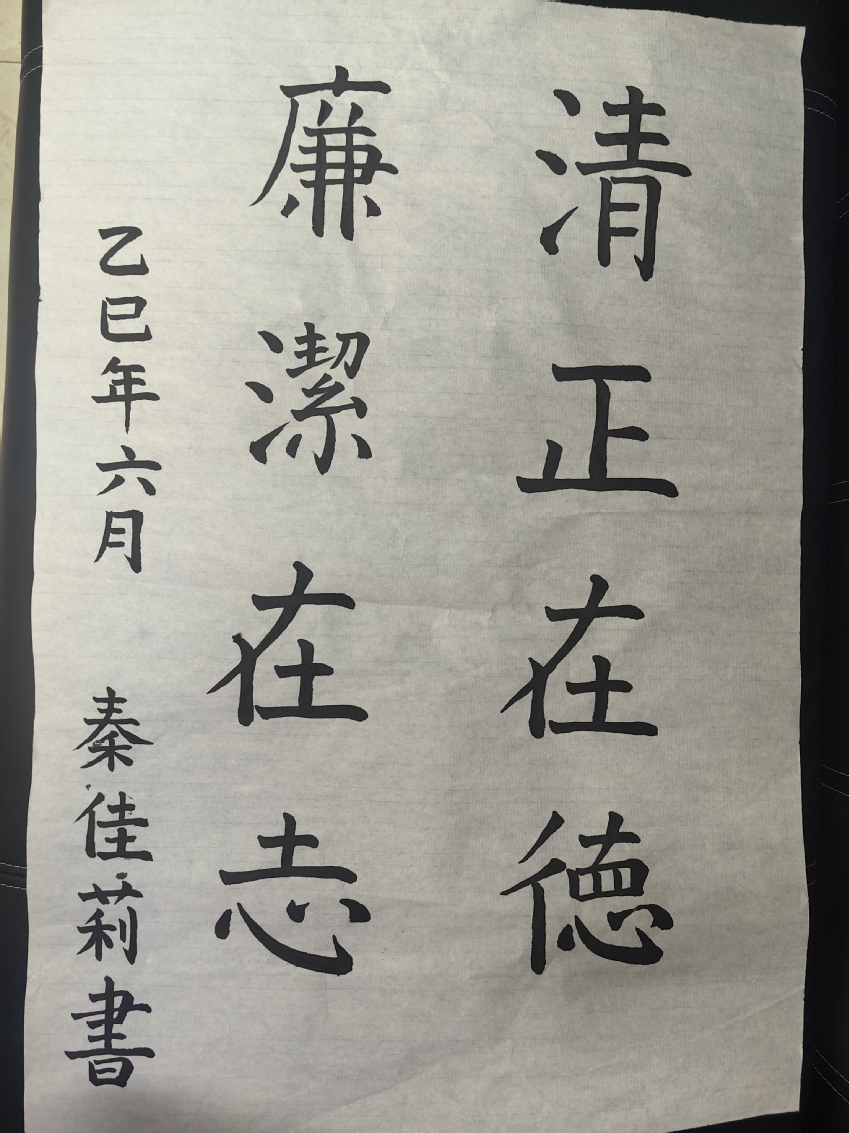 清正在德
廉潔在志
乙巳年六月 秦佳莉書